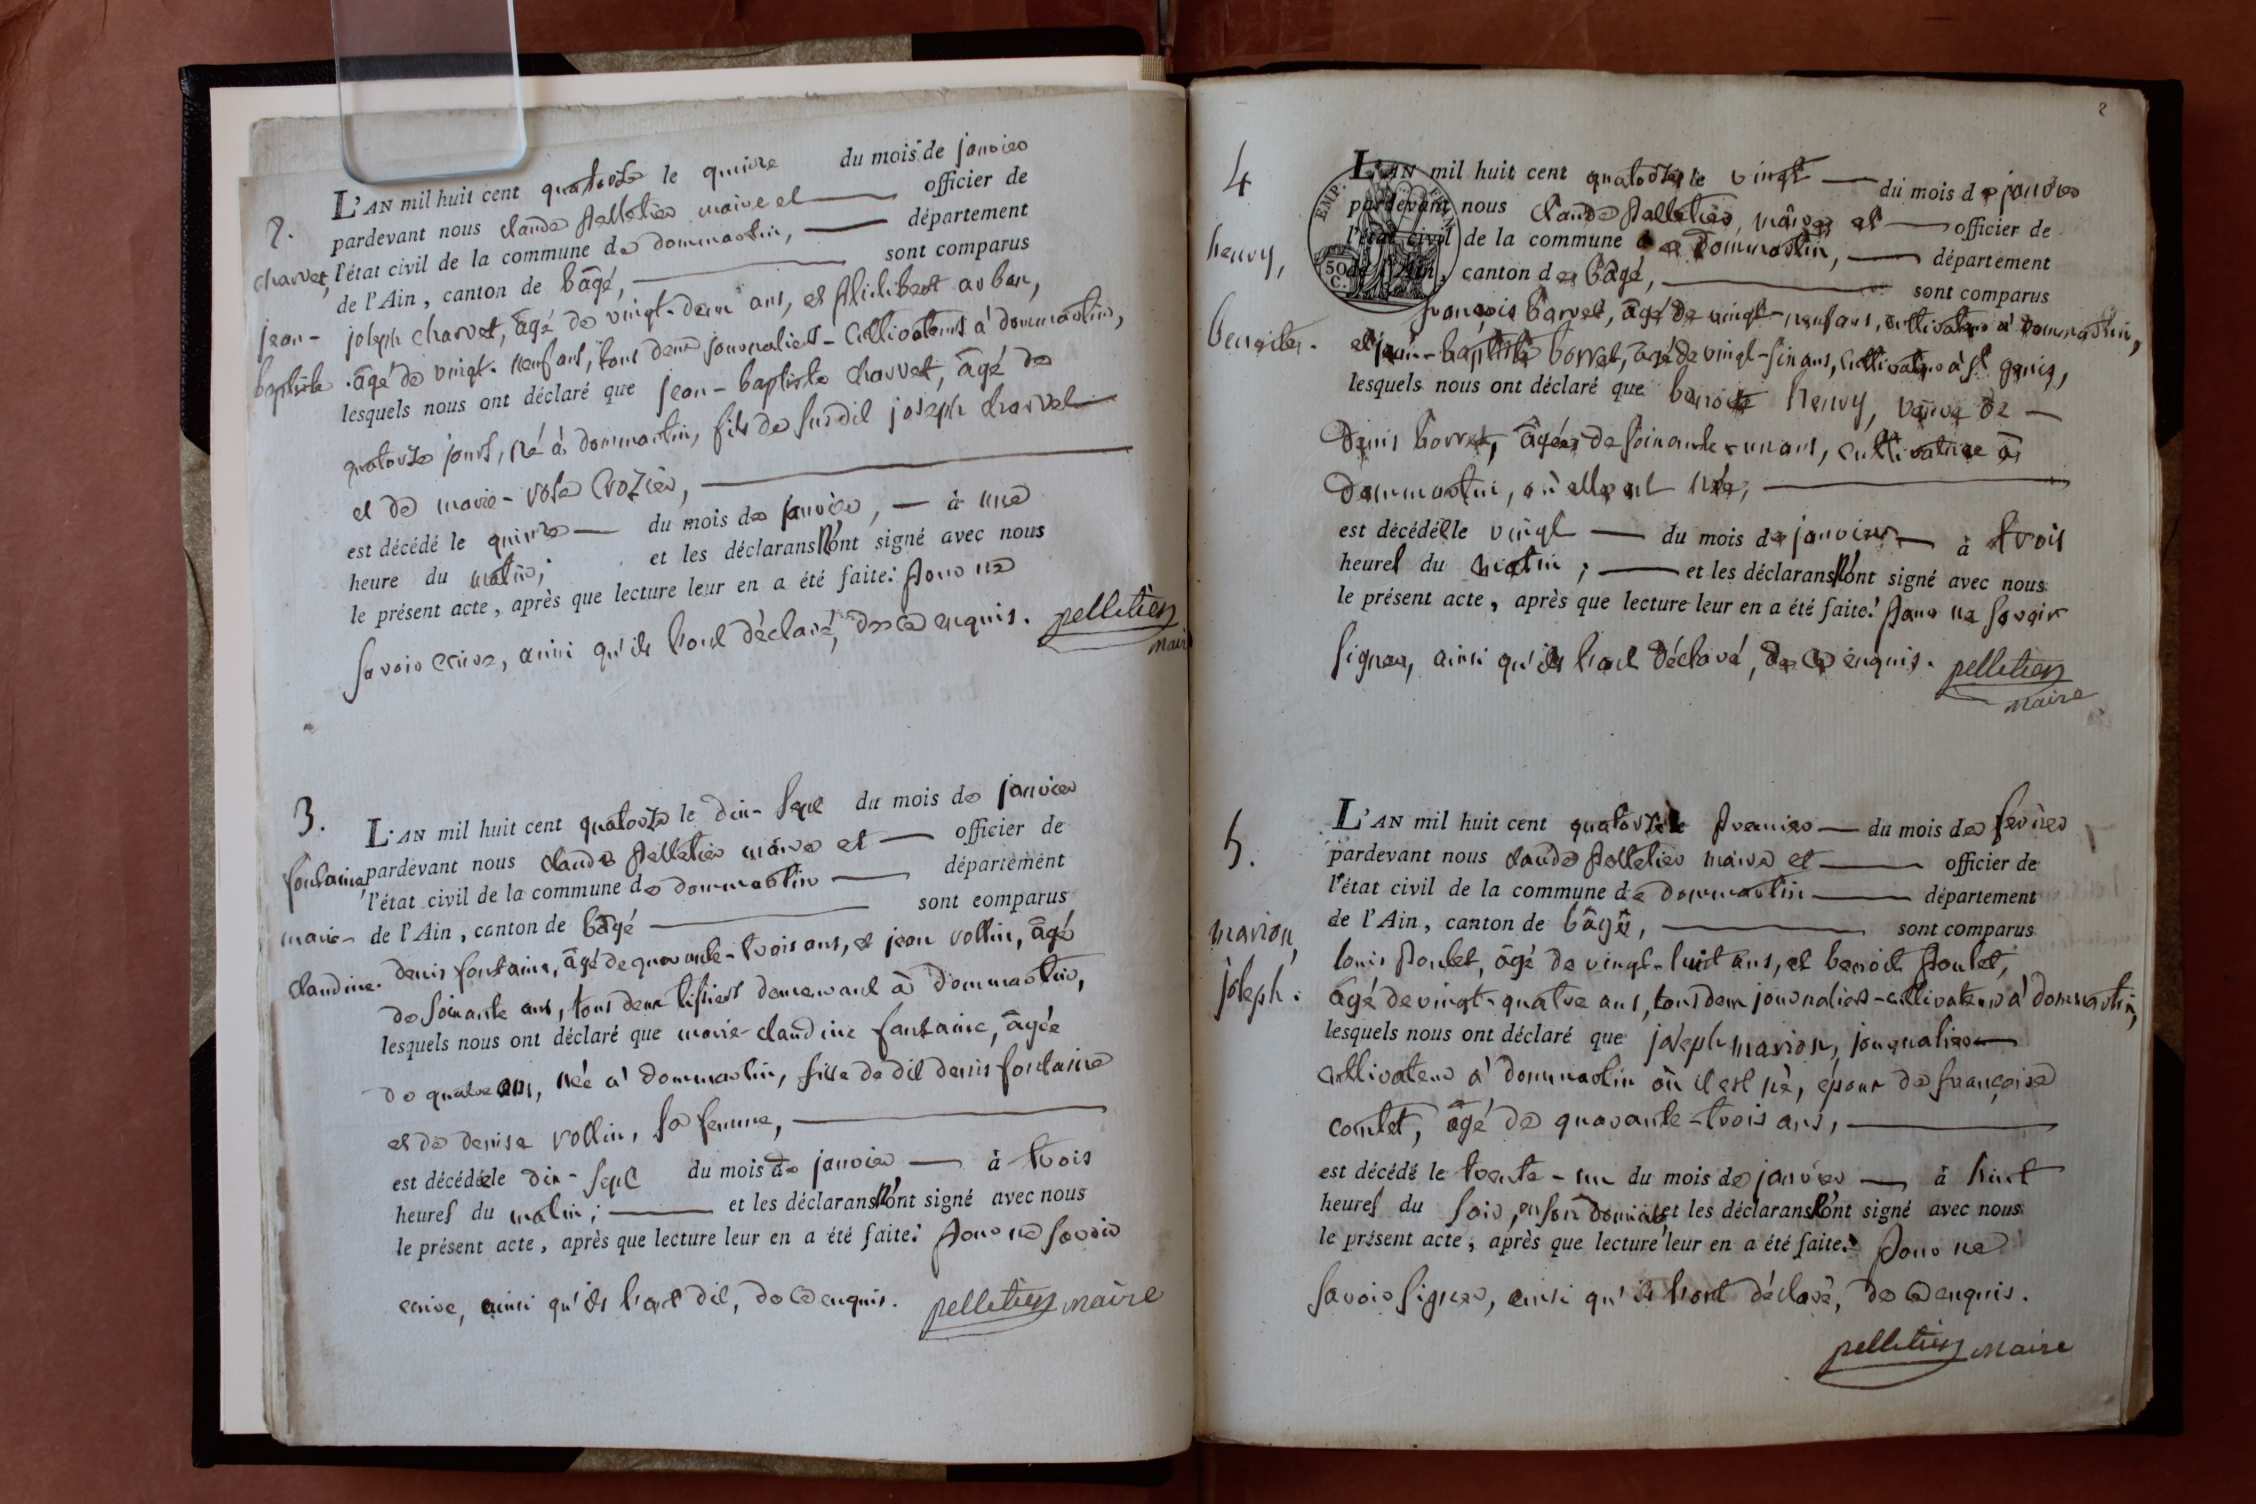 2.
charvet,
jean-
baptiste
L'AN mil huit cent quatorze le quinze du mois de janvier
pardevant nous claude pelletier maire et officier de
l'état civil de la commune de dommartin, département
de l'Ain, canton de bâgé, sont comparus
joseph charvet, âgé de vingt-deux ans, et philibert
âgé de vingt-neuf ans, tous deux journaliers-cultivateurs à dommartin,
lesquels nous ont déclaré que jean-baptiste charvet, âgé de
quatorze jours, né à dommartin, fils de susdit joseph charvet
et de marie-rose crozier,
est décédé le quinze du mois de janvier, à une
heure du matin; et les déclarans n'ont signé avec nous
le présent acte, après que lecture leur en a été faite: pour ne
savoir ecrire, ainsi qu'ils l'ont déclaré, de ce enquis. pelletier
maire
3.
fontaine,
marie-
claudine.
L'AN mil huit cent quatorze le dix-sept du mois de janvier
pardevant nous claude pelletier maire et officier de
l'état civil de la commune de dommartin département
de l'Ain, canton de bâgé sont comparus
denis fontaine, âgé de quarante-trois ans, et jean vollin, âgé
de soixante ans, tous deux tissiers demeurant à dommartin,
lesquels nous ont déclaré que marie-claudine fontaine, âgée
de quatre ans, née à dommartin, fille de dit denis fontaine
et de denise vollin, sa femme,
est décédée le dix-sept du mois de janvier à trois
heures du matin; et les déclarans n'ont signé avec nous
le présent acte, après que lecture leur en a été faite: pour ne savoir
ecrire, ainsi qu'ils l'ont dit, de ce enquis. pelletier maire
2
4
henry,
benoite.
EMP. 50 C.
L'AN mil huit cent quatorze le vingt du mois de janvier
pardevant nous claude pelletier, maire et officier de
l'état civil de la commune de dommartin, département
de l'Ain, canton de bâgé, sont comparus
françois borret, âgé de vingt-neuf ans, cultivateur à dommartin,
et jean-baptiste borret, âgé de vingt-six ans, cultivateur à st genis,
lesquels nous ont déclaré que benoite henry, veuve de
denis borret, âgée de soixante-un ans, cultivatrice à
dommartin, où elle est née,
est décédée le vingt du mois de janvier à trois
heures du matin; et les déclarans n'ont signé avec nous
le présent acte, après que lecture leur en a été faite: pour ne savoir
signer, ainsi qu'ils l'ont déclaré, de ce enquis. pelletier
maire
5.
marion,
joseph.
L'AN mil huit cent quatorze le premier du mois de fevrier
pardevant nous claude pelletier maire et officier de
l'état civil de la commune de dommartin département
de l'Ain, canton de bâgé, sont comparus
louis poulet, âgé de vingt-huit ans, et benoit poulet,
âgé de vingt-quatre ans, tous deux journaliers-cultivateurs à dommartin,
lesquels nous ont déclaré que joseph marion, journalier
cultivateur à dommartin où il est né, époux de françoise
comtet, âgé de quarante-trois ans,
est décédé le trente-un du mois de janvier à huit
heures du soir, en son domicile et les déclarans n'ont signé avec nous
le présent acte, après que lecture leur en a été faite: pour ne
savoir signer, ainsi qu'ils l'ont déclaré, de ce enquis.
pelletier maire